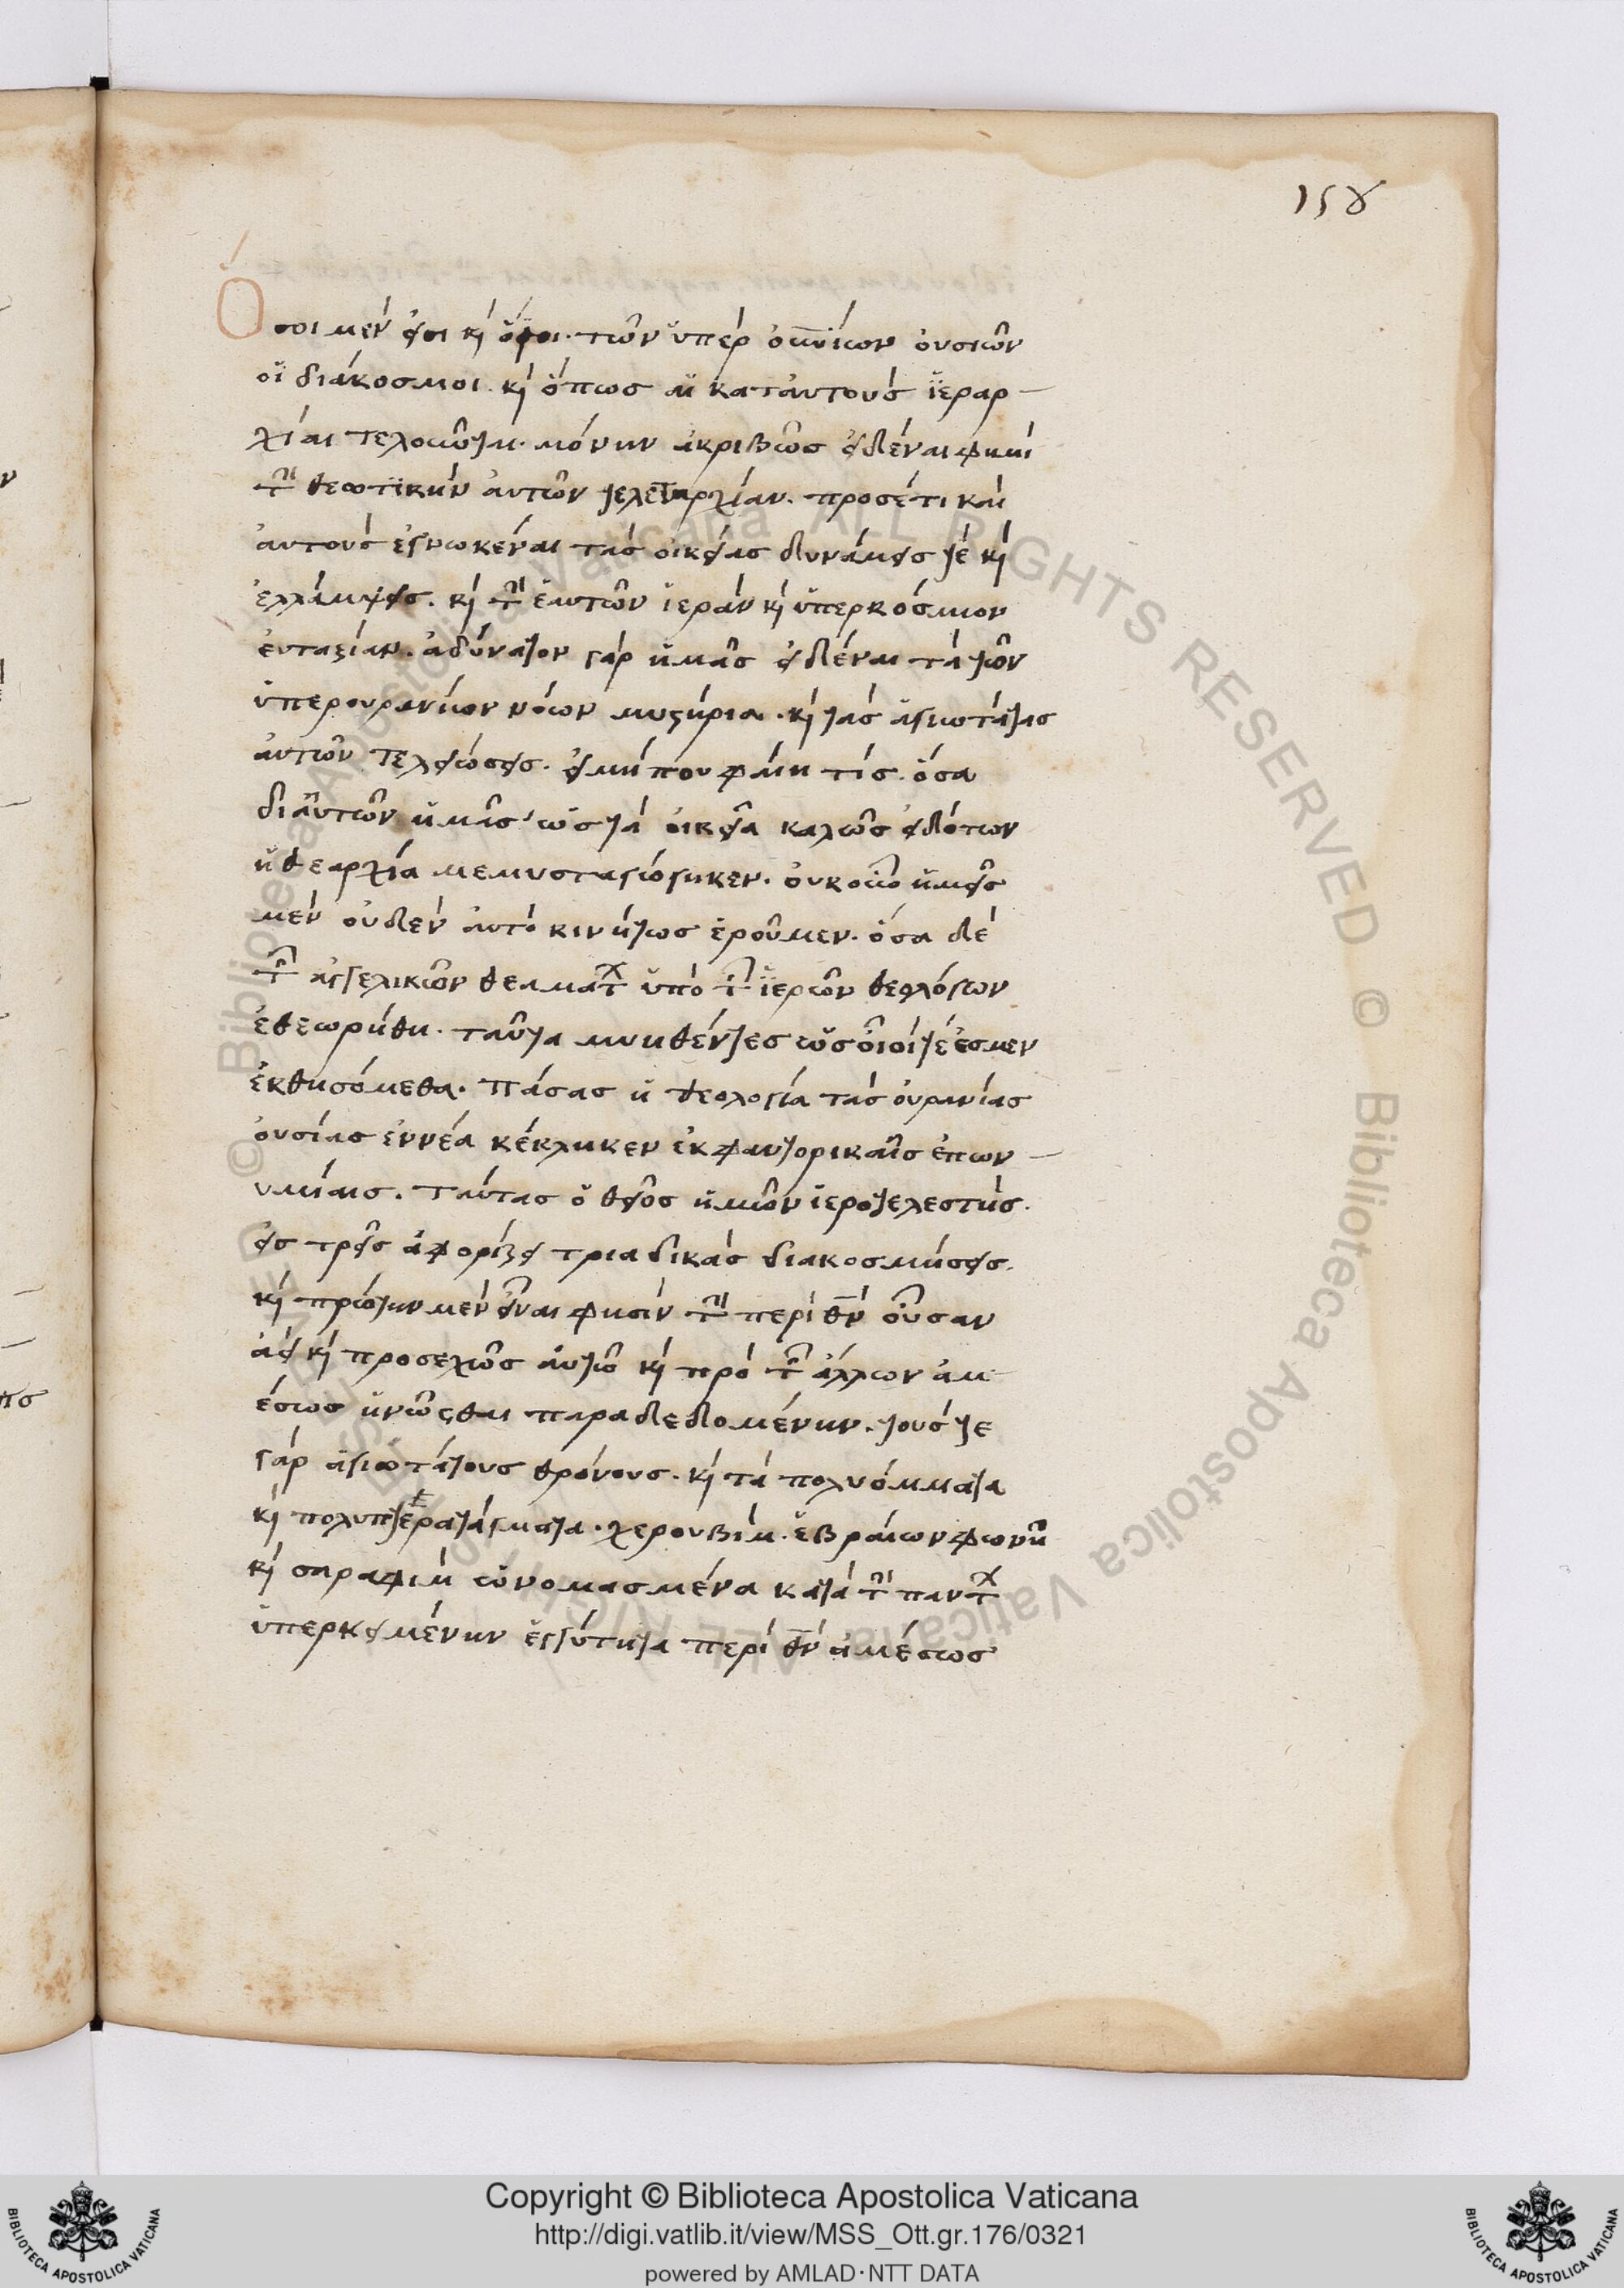 158
Ὅσοι μέν εἰσι κὶ ὅροι. τῶν ὑπὲρ οὐνίων οὐσιῶν
οἱ διάκοσμοι. κὶ ὅπως αἱ κατ᾽αὐτοὺς ἱεραρ
χίαι τελοῦνται. μόνην ἀκριβῶς εἰδέναι φημὶ
τὴν θεωτικὴν αὐτῶν τελεταρχίαν. προσέτι καὶ
αὐτοὺς ἐγνωκέναι τὰς οἰκείας δυνάμεις τὲ κὶ
ἐλλάμψεις. κὶ τὴν ἑαυτῶν ἱερὰν κὶ ὑπερκόσμιον
ἐυταξίαν. ἀδύνατον γὰρ ἡμᾶς εἰδέναι τὰ τῶν
ὑπερουρανίων νόων μυστήρια. κὶ τὰς ἁγιωτάτας
ἀυτῶν τελειώσεις. εἰμήπου φαίη τίς. ὅσα
δι᾽αὐτῶν ἡμᾶς ὡς τὰ οἰκεῖα καλῶς εἰδότων
ἡ θεαρχία μεμυσταγώγηκεν. οὐκοῦν ἡμεῖς
μὲν οὐδὲν ἀυτὸ κινήτως ἐροῦμεν. ὅσα δὲ
τῶν ἀγγελικῶν θεαμάτων ὑπὸ τῶν ἱερῶν θεολόγων
ἐθεωρήθη. ταῦτα μυηθέντες ὡς οἷοί τέ ἐσμεν
ἐκθησόμεθα. Πάσας ἡ θεολογία τὰς οὐρανίας
οὐσίας ἐννέα κέκληκεν ἐκφαντορικαῖς ἐπων
υμίαις. ταύτας ὁ θεῖος ἡμῶν ἱεροτελεστὴς.
εἰς τρεῖς ἀφορίζει τριαδικὰς διακοσμήσεις.
κὶ πρώτην μὲν εἶναι φησὶν τὴν περὶ θν οὖσαν
ἀεὶ κὶ προσεχῶς αὐτῶ κὶ πρὸ τῶν ἄλλων ἀμ
έσως ἡνῶσθαι παραδεδομένην. τούς τε
γὰρ ἁγιωτάτους θρόνους. κὶ τὰ πολυόμματα
κὶ πολύπτερα τάγματα. χερουβὶμ ἑβραίων φωνῆ
κὶ σαραφιμ ὠνομασμένα κατὰ τὴν πάντων
ὑπερκειμένην ἐγγύτητα περὶ θν ἀμέσως
Copyright © Biblioteca Apostolica Vaticana
http://digi.vatlib.it/view/MSS_Ott.gr.176/0321
powered by AMLAD·NTT DATA